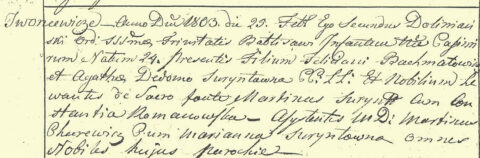 Iwoncewicze – Anno Dni 1803. die 29. Feb. Ego Secundus Doliniań
ski Ord: SSmæ Trinitatis Battisavi Infantem Nrīs Casimi
rum Natum 24. presentis Filium Felicîani Bachmatowicz
et Agatha De domo Suryntowna CC: LL: Et Nobilium Le
vantes de Sacro fonte Martinus Surynt Cum Con
stantia Romanowska – Assystentes MD: Martinus
Chorewicz Cum Marianna Suryntowna omnes
Nobiles hujus parochiæ –